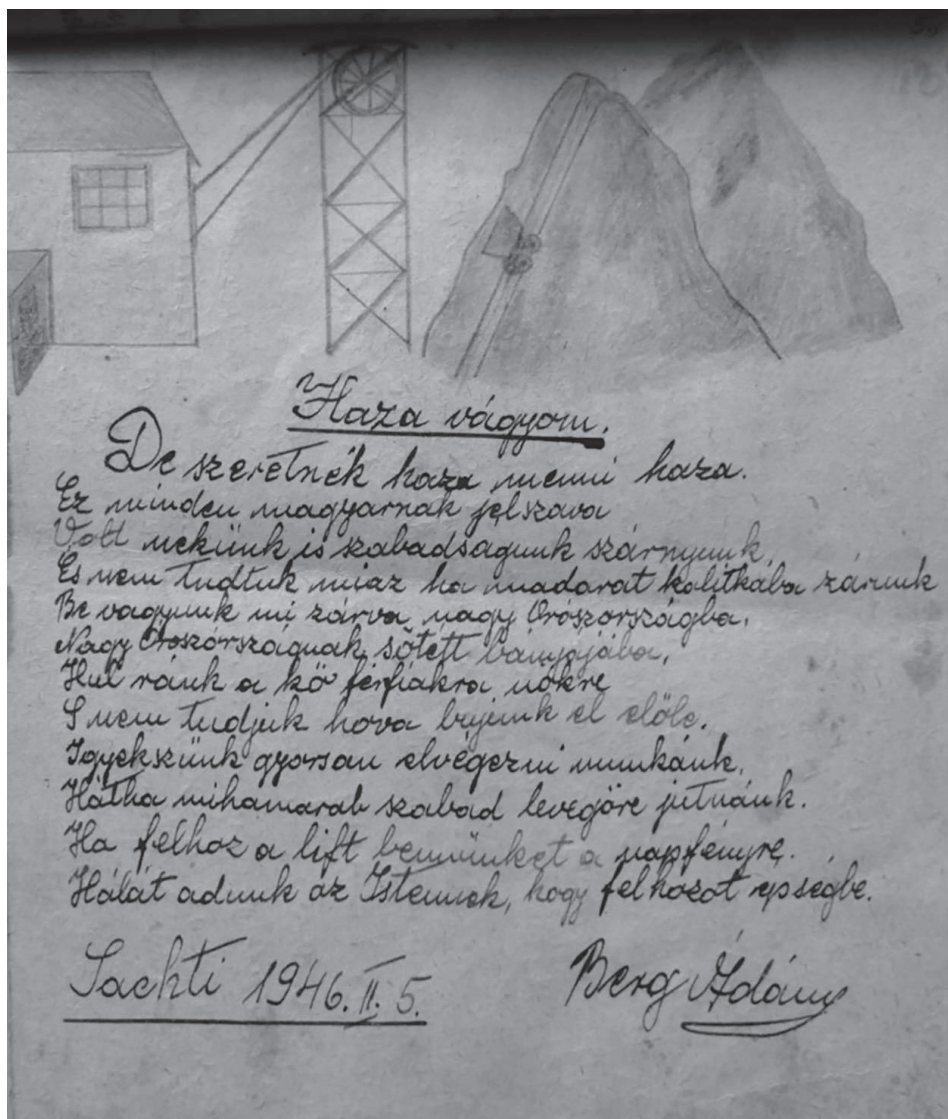 Haza vágyom.
De szeretnék haza menni haza.
Ez minden magyarnak jelszava
Volt nekünk is szabadságunk szárnyunk,
És nem tudtuk miaz ha madarat kalitkába zárunk
Be vagyunk mi zárva nagy Oroszországba,
Nagy Oroszországnak sötét bányájába,
Hul ránk a kő férfiakra nőkre
S nem tudjuk hova bujunk el előle.
Igyekszünk gyorsan elvégezni munkánk,
Hátha mihamarab szabad levegőre jutnánk.
Ha felhoz a lift bennünket a napfényre.
Hálát adunk az Istennek, hogy felhozot épségbe.
Sachti 1946. II. 5.
Berg Ádám